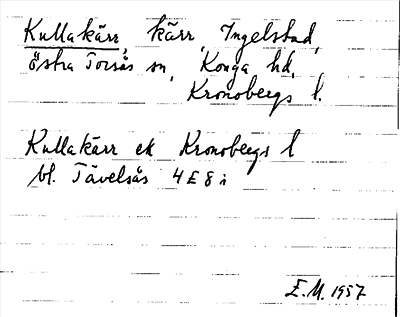 Kullakärr, kärr, Ingelstad,
Östra Torsås sn, Konga hd,
Kronobergs l.
Kullakärr ek Kronobergs l
bl. Tävelsås 4E8i
E.M. 1957